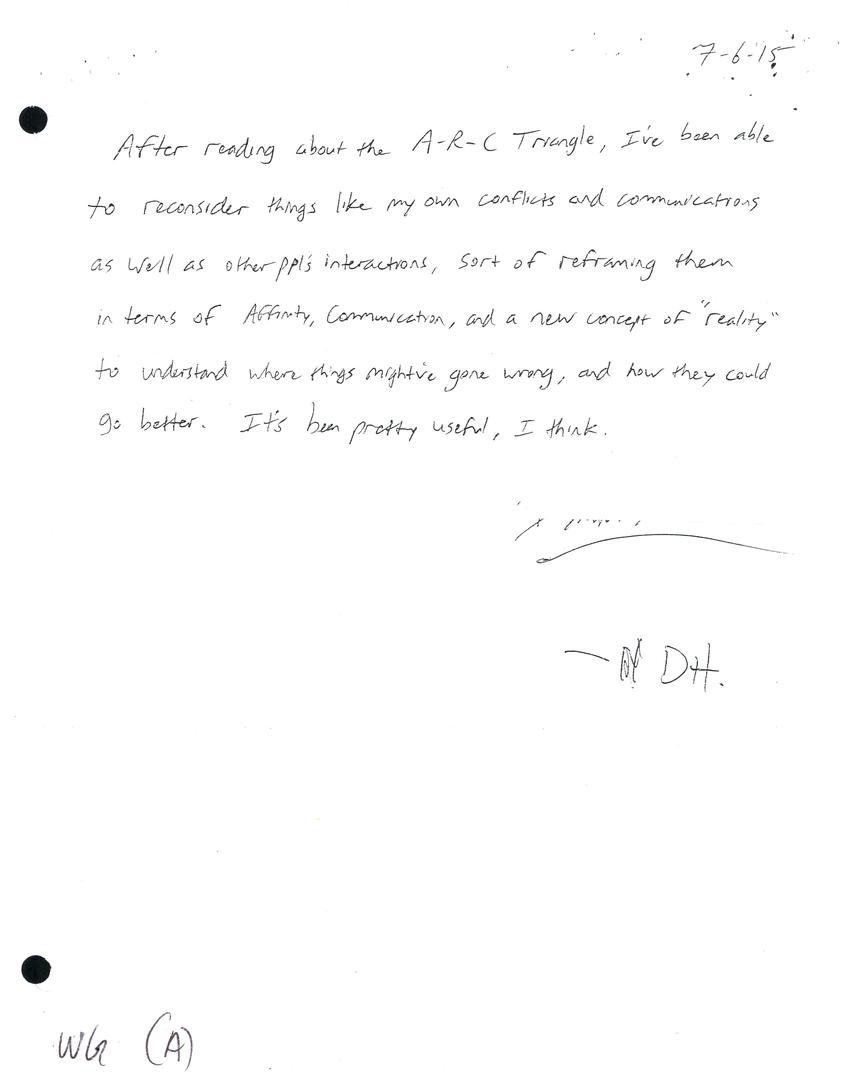 7-6-15
After reading about the A-R-C Triangle, I've been able
to reconsider things like my own conflicts and communications
as well as other ppl's interactions, sort of reframing them
in terms of Affinity, Communication, and a new concept of "reality"
to understand where things might've gone wrong, and how they could
go better. It's been pretty useful, I think.
— DH.
(A)